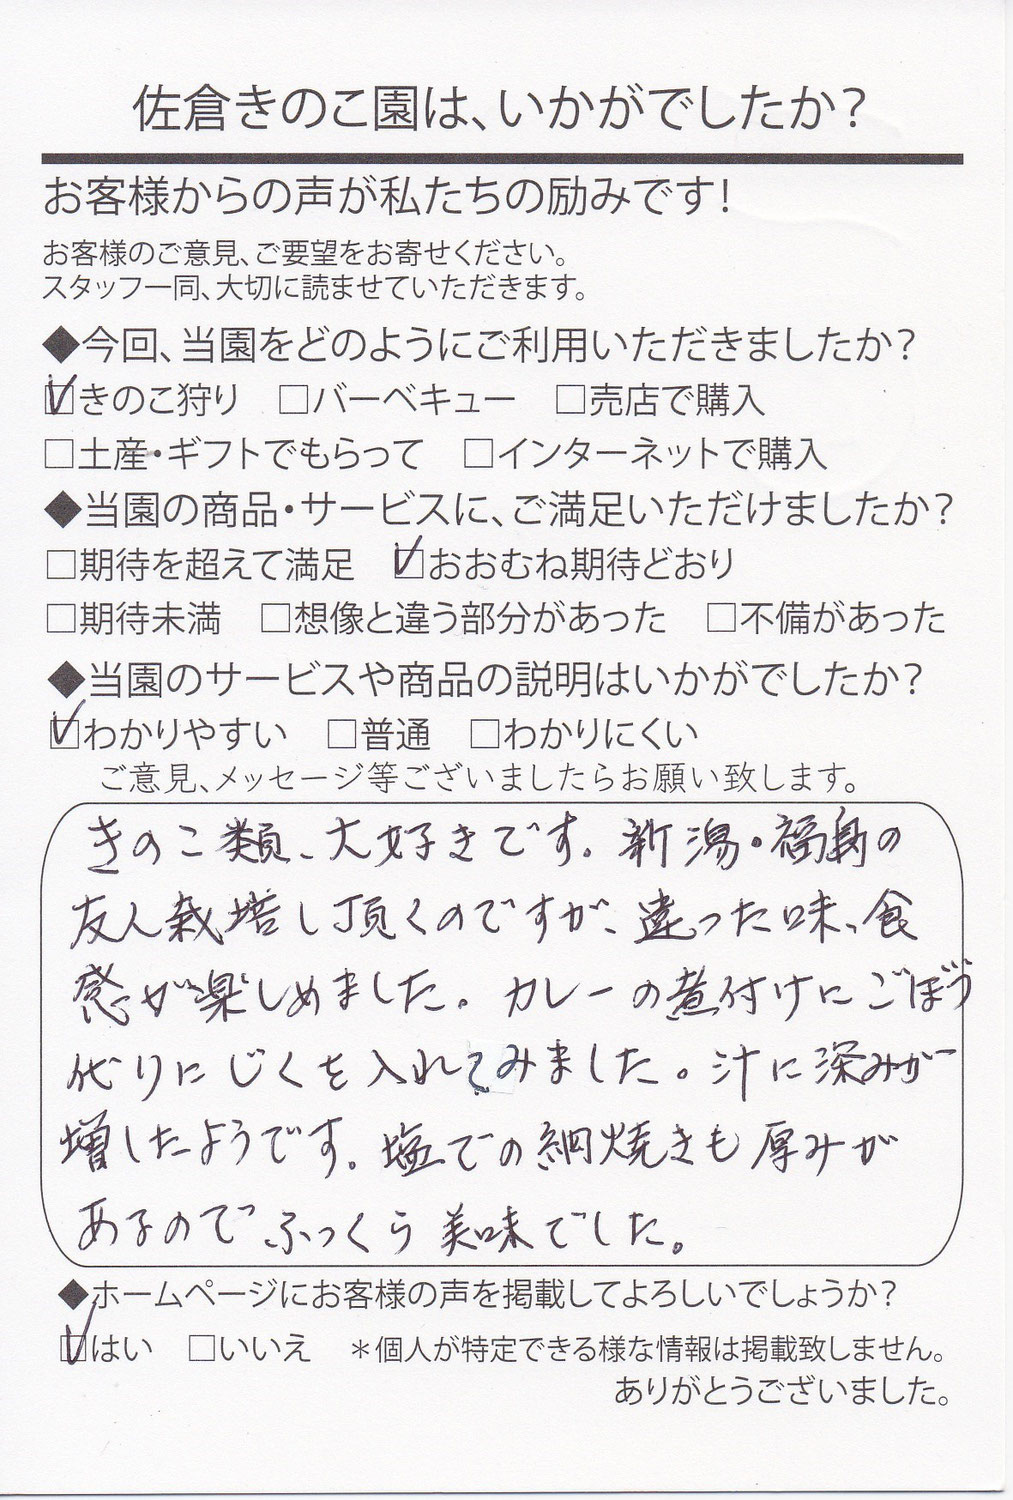 佐倉きのこ園は、いかがでしたか？
お客様からの声が私たちの励みです！
お客様のご意見、ご要望をお寄せください。
スタッフ一同、大切に読ませていただきます。
◆今回、当園をどのようにご利用いただきましたか？
☑きのこ狩り　□バーベキュー　□売店で購入
□土産・ギフトでもらって　□インターネットで購入
◆当園の商品・サービスに、ご満足いただけましたか？
□期待を超えて満足　☑おおむね期待どおり
□期待未満　□想像と違う部分があった　□不備があった
◆当園のサービスや商品の説明はいかがでしたか？
☑わかりやすい　□普通　□わかりにくい
ご意見、メッセージ等ございましたらお願い致します。
きのこ類、大好きです。新潟・福島の
友人栽培し頂くのですが、違った味、食
感が楽しめました。カレーの煮付けにごぼう
代りにじくを入れてみました。汁に深みが
増したようです。塩での網焼きも厚みが
あるので ふっくら美味でした。
◆ホームページにお客様の声を掲載してよろしいでしょうか？
☑はい　□いいえ　＊個人が特定できる様な情報は掲載致しません。
ありがとうございました。